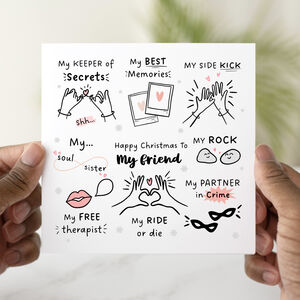 My KEEPER of
Secrets
shh...
My BEST
Memories
My SIDE KICK
My...
soul
sister
Happy Christmas To
My Friend
My ROCK
My FREE
therapist
My RIDE
or die
My PARTNER
in Crime